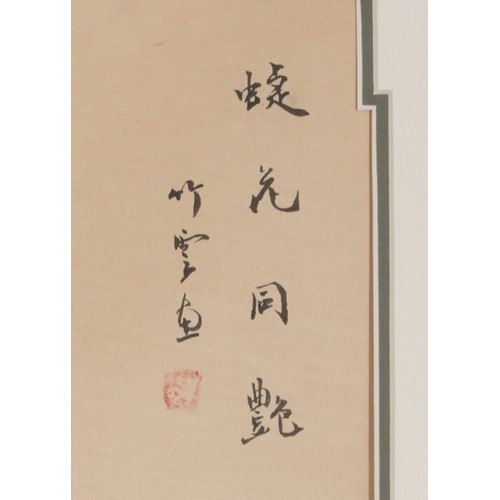 蜨花同艶
竹雲画